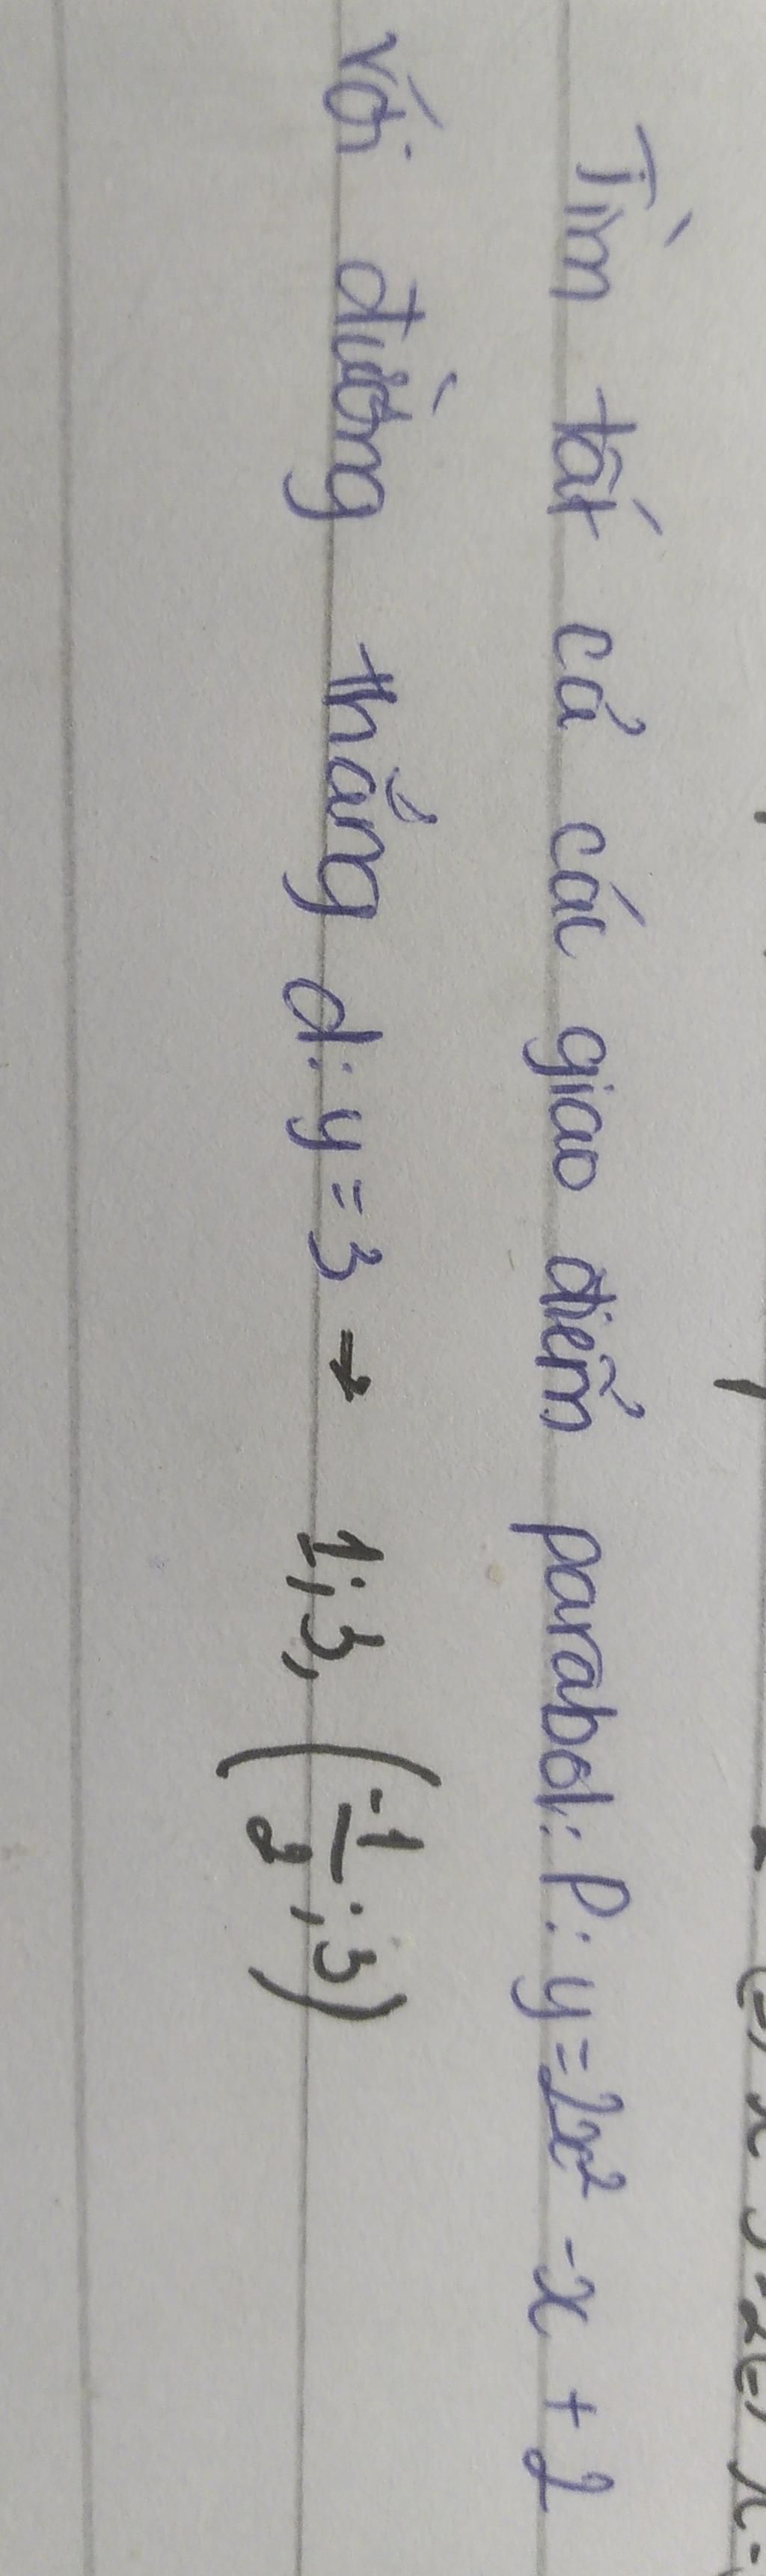 Tìm tất cả các giao điểm parabol: P: y = 2x² - x + 2
với đường thẳng d: y = 3 → 1; 3, (-1/2; 3)